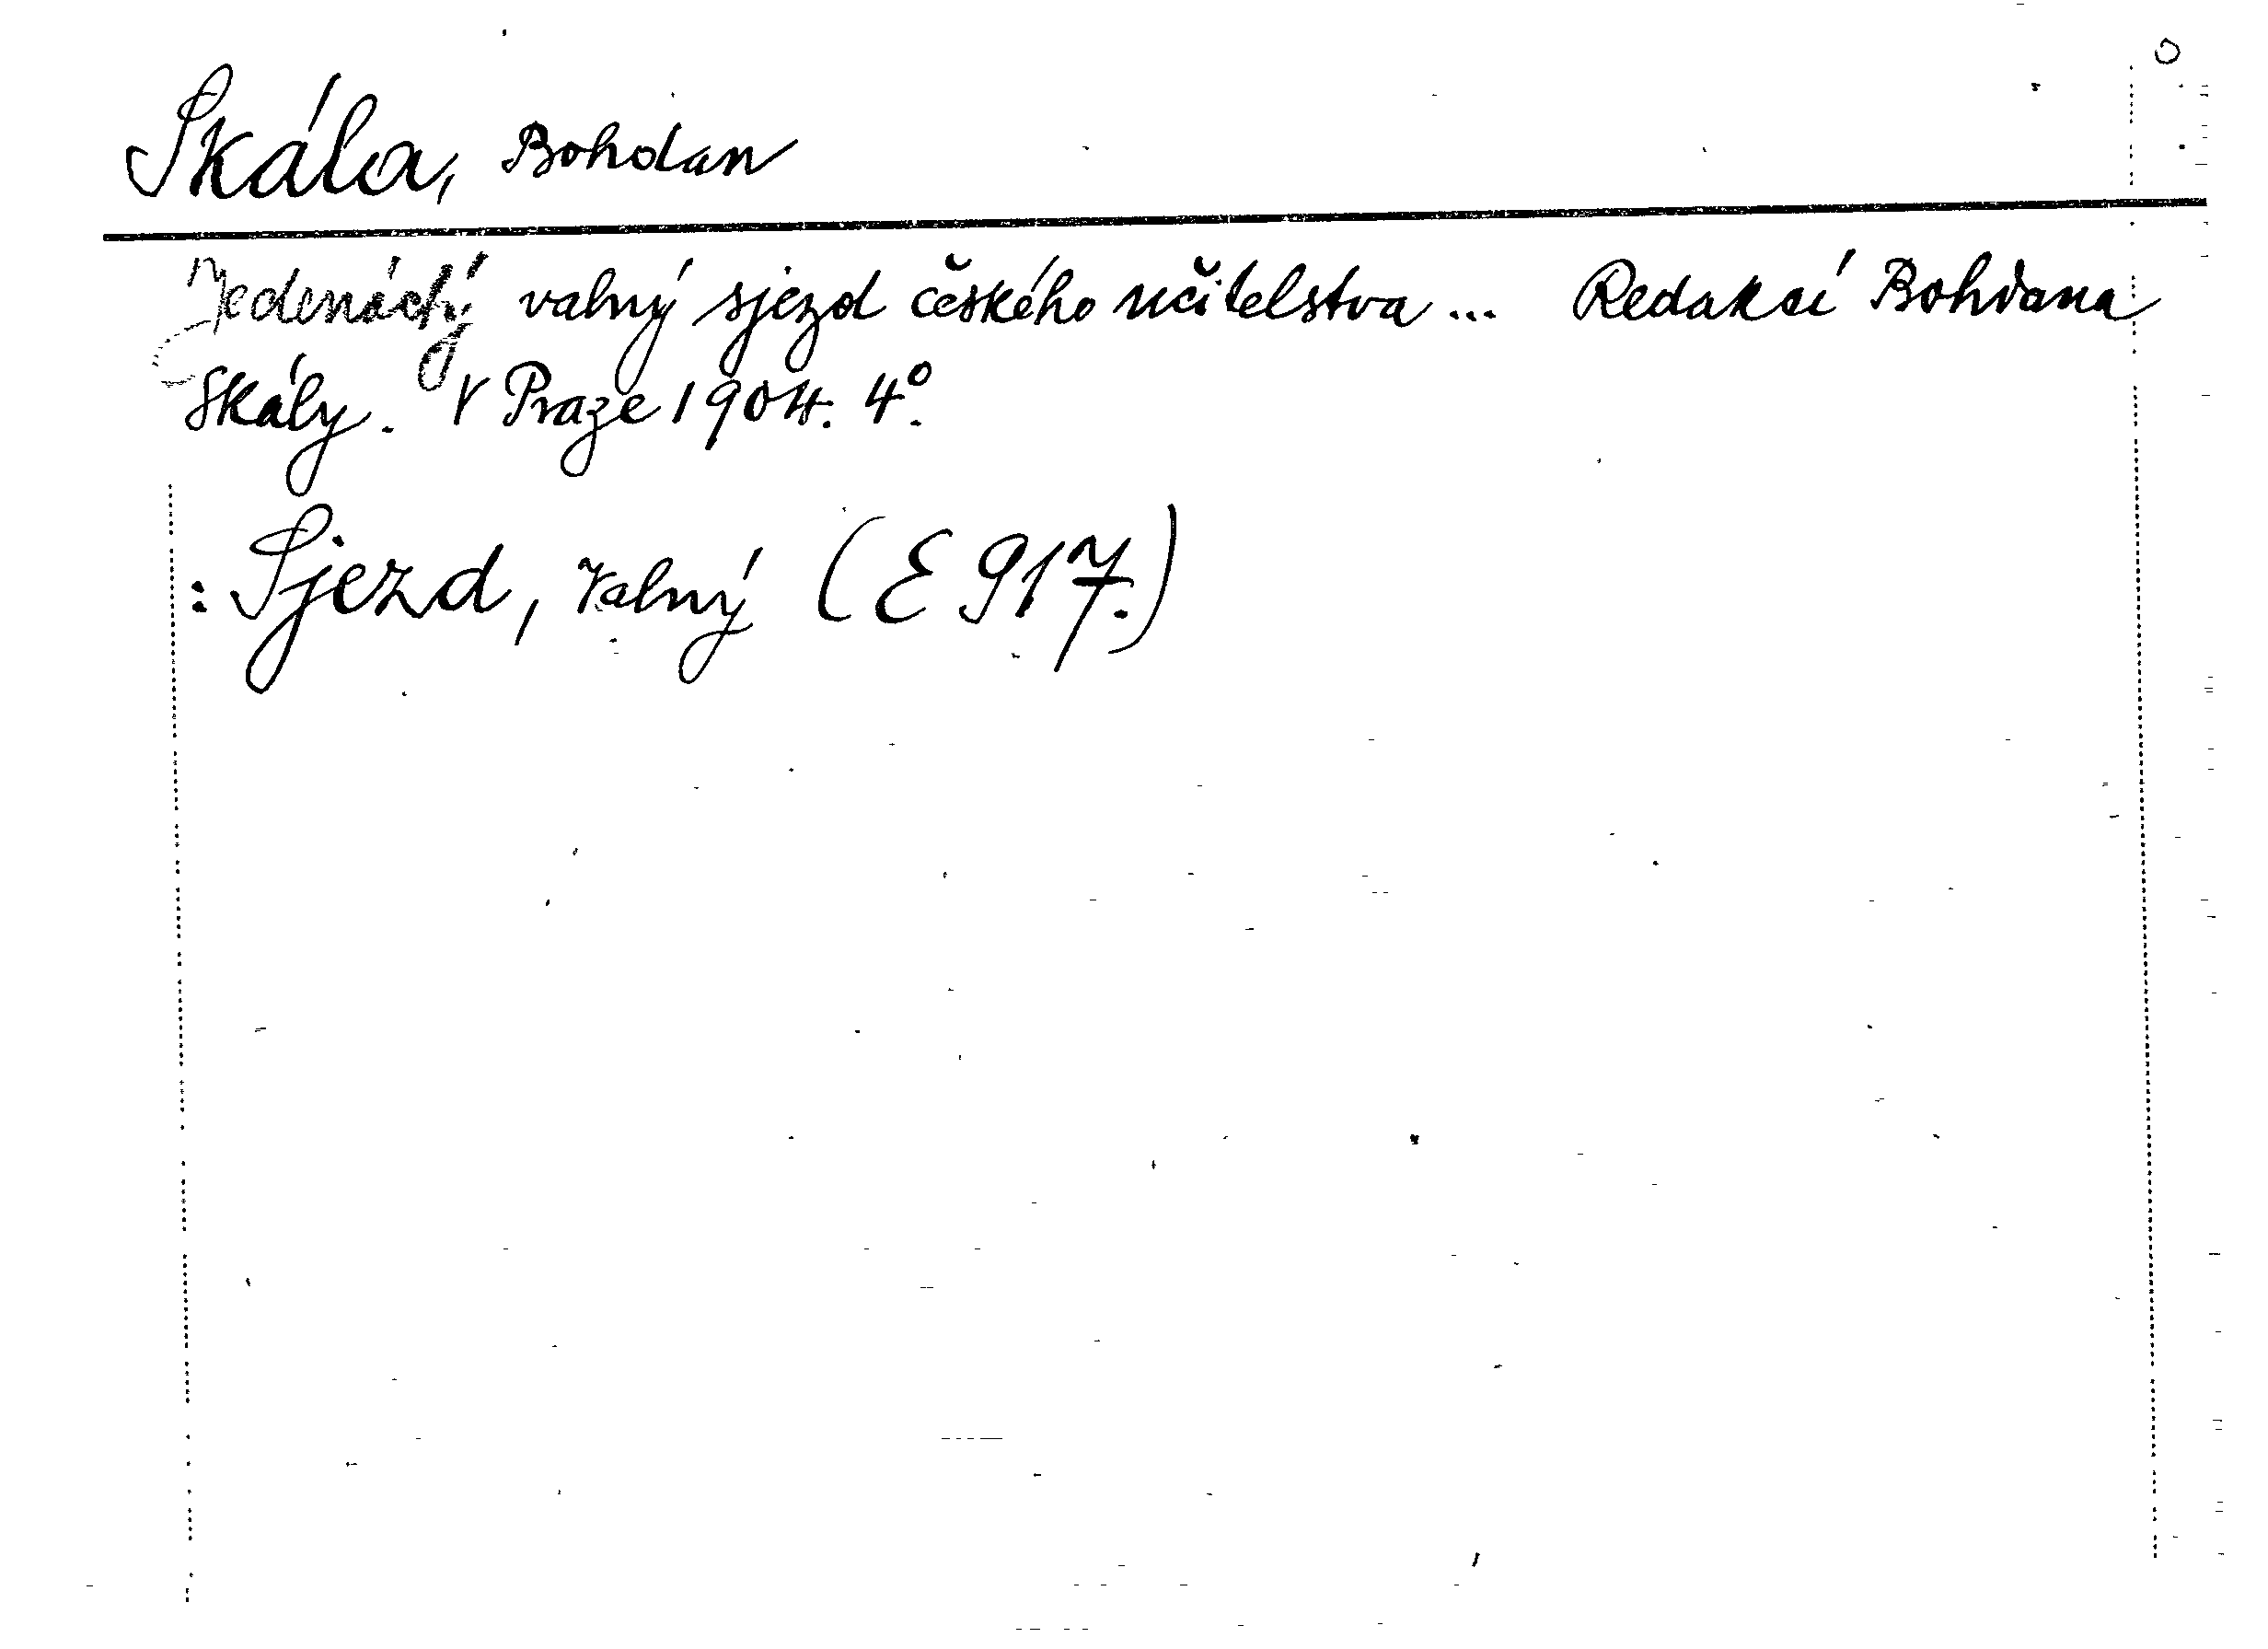 Skála, Bohdan
Jedenáctý valný sjezd českého učitelstva... Redakcí Bohdana
Skály. V Praze 1904. 4°.
: Sjezd, valný (E 917.)